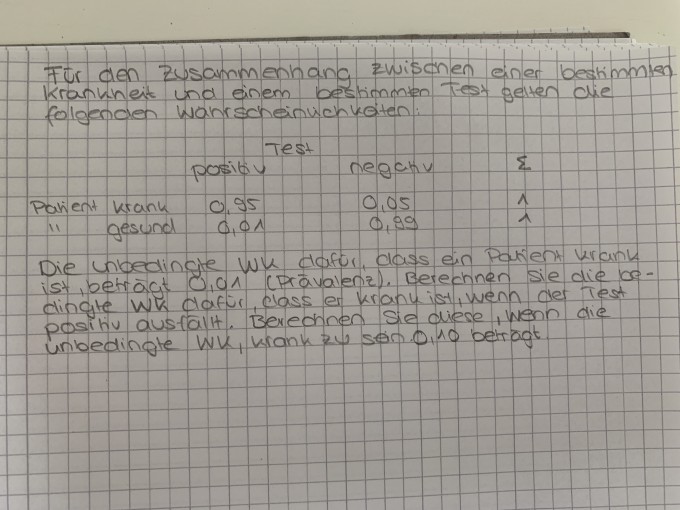 Für den Zusammenhang zwischen einer bestimmten
Krankheit und einem bestimmten Test gelten die
folgenden Wahrscheinlichkeiten:
Test
positiv negativ Σ
Patient krank 0,95 0,05 1
" gesund 0,01 0,99 1
Die unbedingte WK dafür, dass ein Patient krank
ist, beträgt 0,01 (Prävalenz). Berechnen Sie die be-
dingte WK dafür, dass er krank ist, wenn der Test
positiv ausfällt. Berechnen Sie diese, wenn die
unbedingte WK, krank zu sein 0,10 beträgt